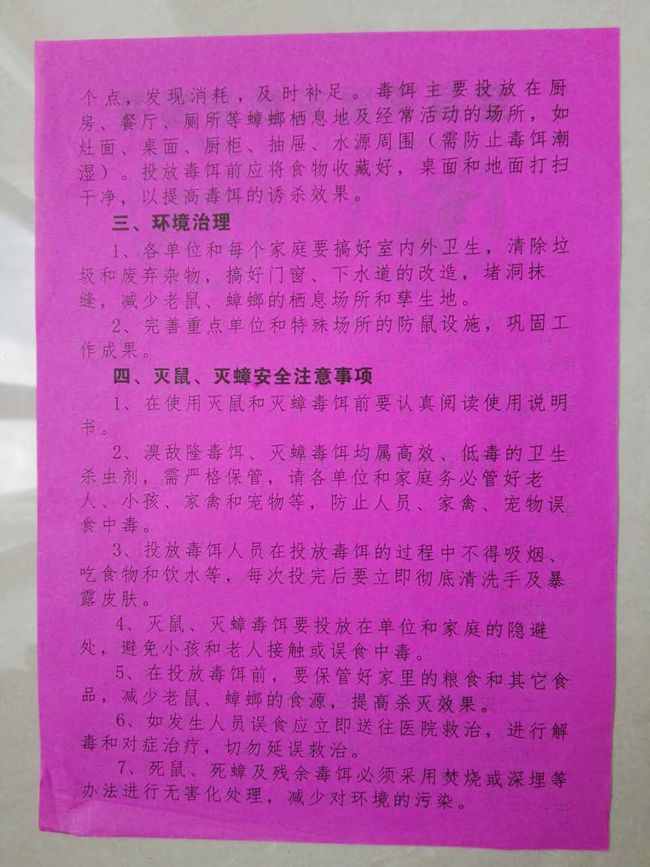 个点，发现消耗，及时补足。毒饵主要投放在厨
房、餐厅、厕所等蟑螂栖息地及经常活动的场所，如
灶面、桌面、厨柜、抽屉、水源周围（需防止毒饵潮
湿）。投放毒饵前应将食物收藏好，桌面和地面打扫
干净，以提高毒饵的诱杀效果。
三、环境治理
1、各单位和每个家庭要搞好室内外卫生，清除垃
圾和废弃杂物，搞好门窗、下水道的改造，堵洞抹
缝，减少老鼠、蟑螂的栖息场所和孳生地。
2、完善重点单位和特殊场所的防鼠设施，巩固工
作成果。
四、灭鼠、灭蟑安全注意事项
1、在使用灭鼠和灭蟑毒饵前要认真阅读使用说明
书。
2、溴敌隆毒饵、灭蟑毒饵均属高效、低毒的卫生
杀虫剂，需严格保管，请各单位和家庭务必管好老
人、小孩、家禽和宠物等，防止人员、家禽、宠物误
食中毒。
3、投放毒饵人员在投放毒饵的过程中不得吸烟、
吃食物和饮水等，每次投完后要立即彻底清洗手及暴
露皮肤。
4、灭鼠、灭蟑毒饵要投放在单位和家庭的隐避
处，避免小孩和老人接触或误食中毒。
5、在投放毒饵前，要保管好家里的粮食和其它食
品，减少老鼠、蟑螂的食源，提高杀灭效果。
6、如发生人员误食应立即送往医院救治，进行解
毒和对症治疗，切勿延误救治。
7、死鼠、死蟑及残余毒饵必须采用焚烧或深埋等
办法进行无害化处理，减少对环境的污染。